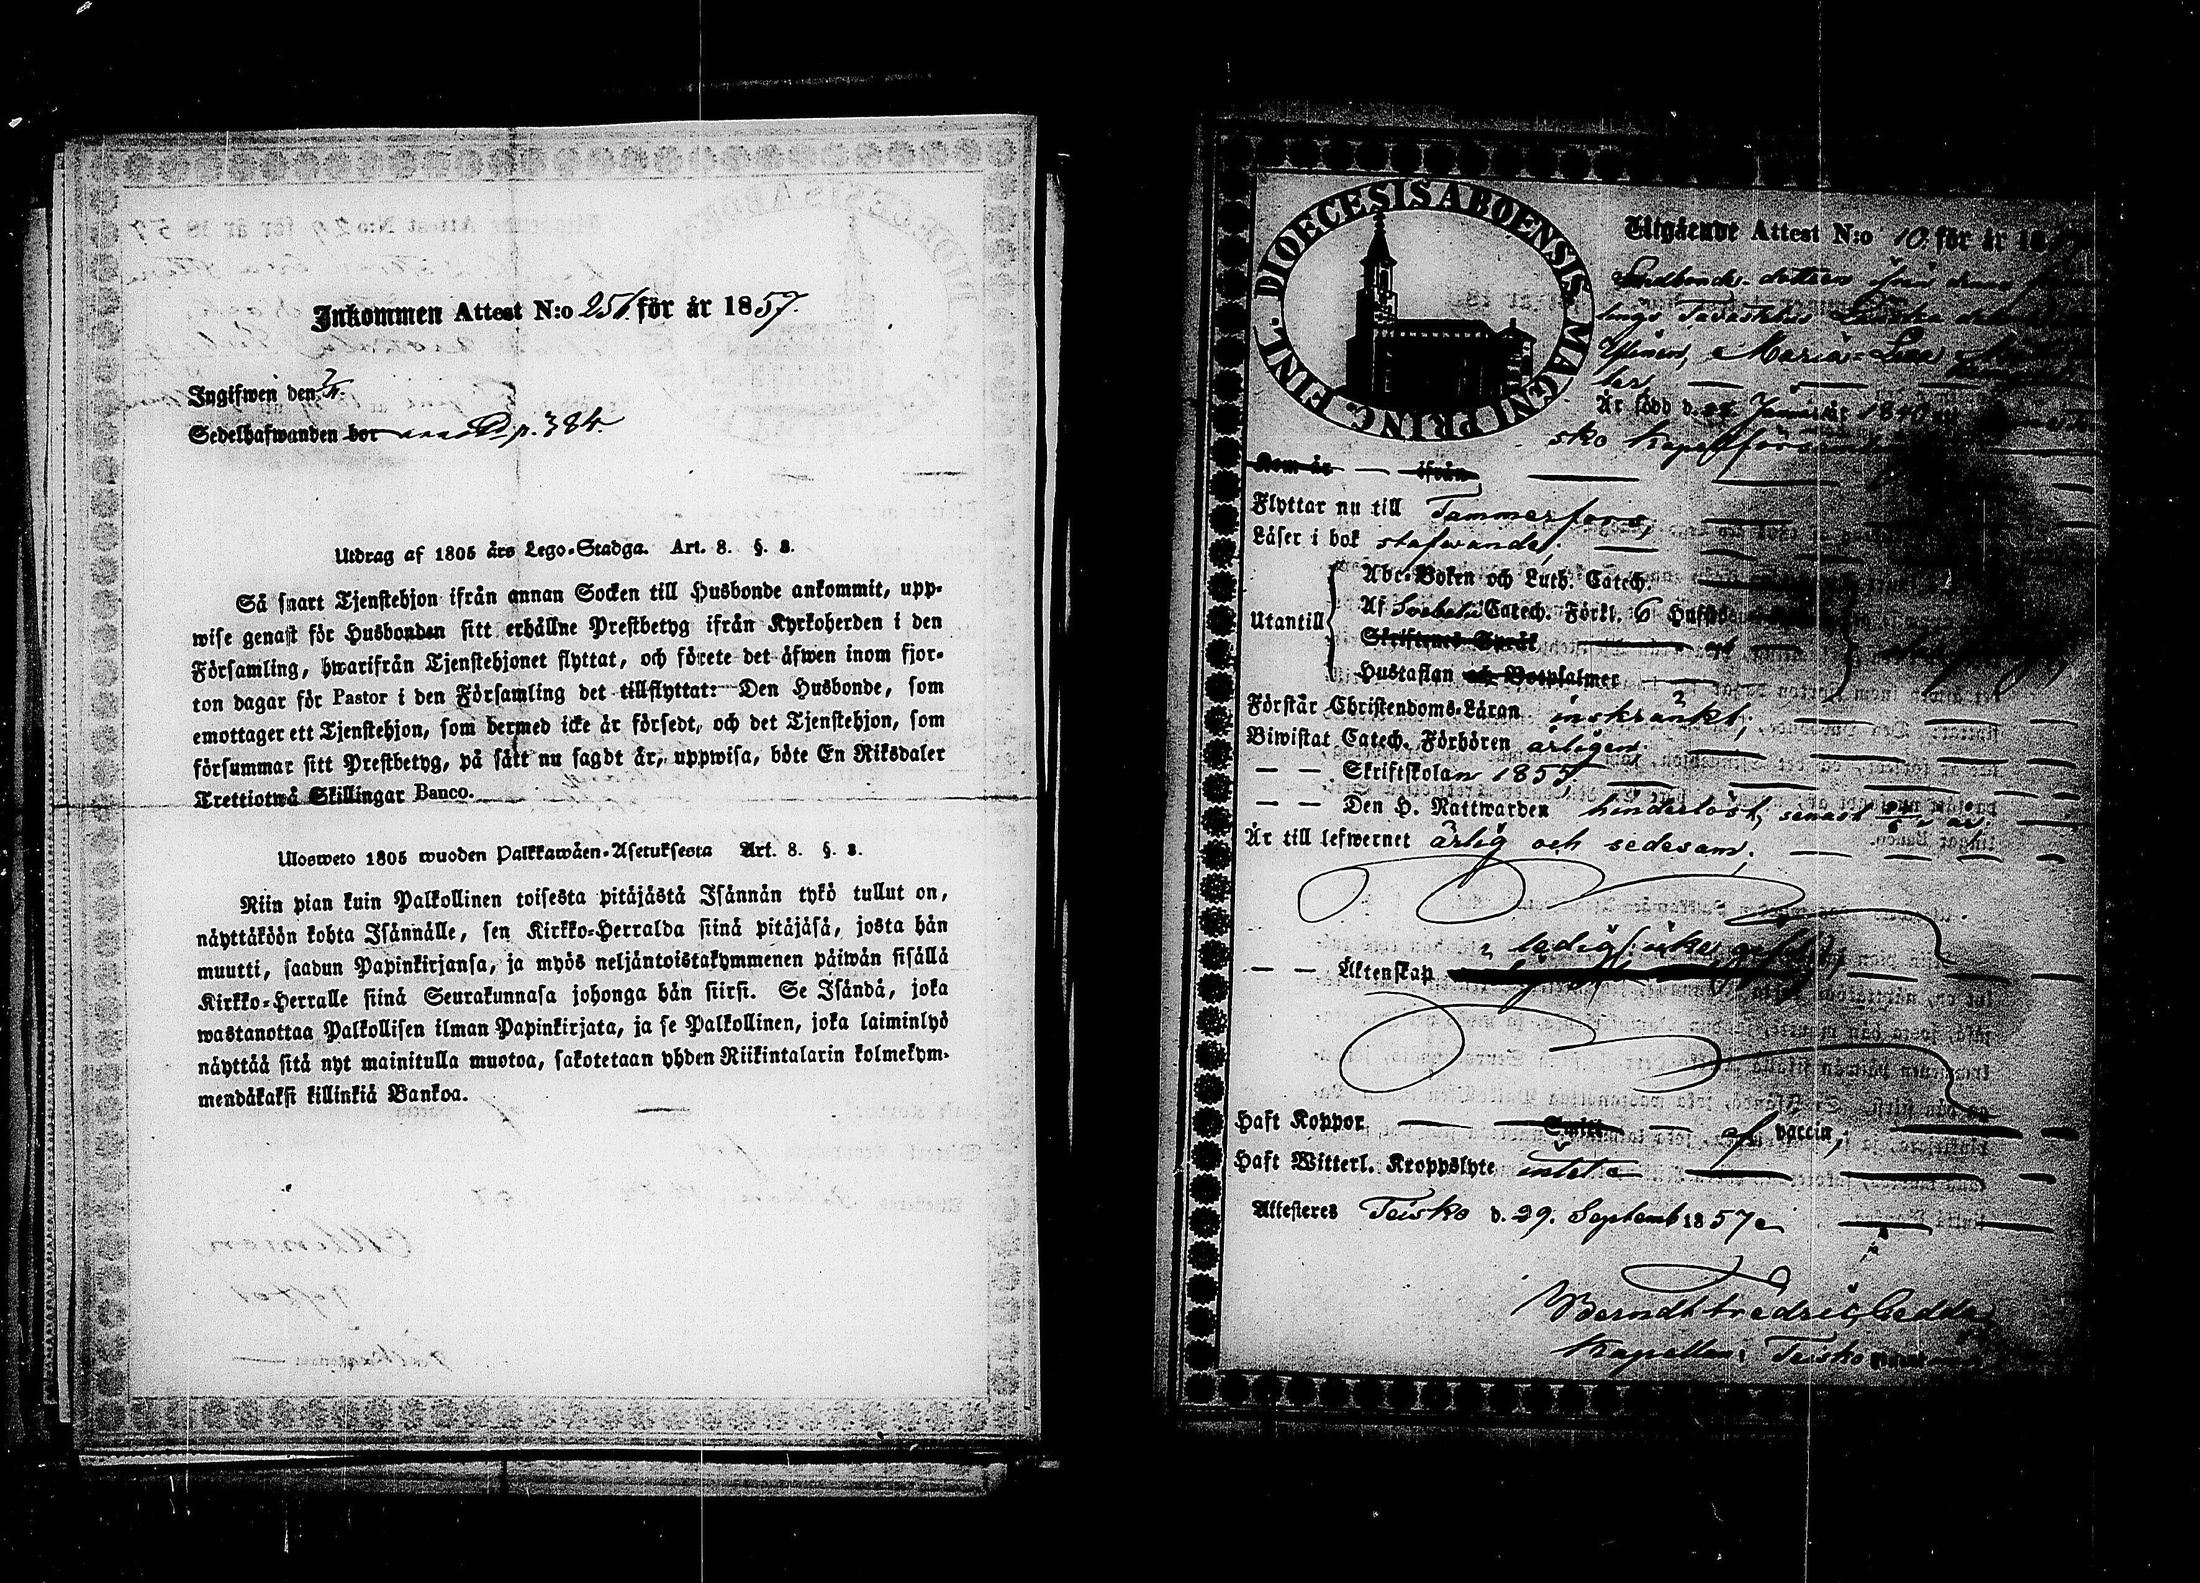 Inkommen Attest N:o 251 för år 1857.
Ingifwen den
Sedelhafwanden bor p. 384.
Utdrag af 1805 års Lego-Stadga. Art. 8. §. 2.
Så snart Tjenstehjon ifrån annan Socken till Husbonde ankommit, upp-
wise genast för Husbonden sitt erhållne Prestbetyg ifrån Kyrkoherden i den
Församling, hwarifrån Tjenstehjonet flyttat, och förete det äfwen inom fjor-
ton dagar för Pastor i den Församling det tillflyttat: Den Husbonde, som
emottager ett Tjenstehjon, som dermed icke är försedt, och det Tjenstehjon, som
försummar sitt Prestbetyg, på sätt nu sagdt är, uppwisa, böte En Riksdaler
Trettiotwå Skillingar Banco.
Ulosweto 1805 wuoden Palkkawäen-Asetuksesta Art. 8. §. 2.
Niin pian kuin Palkollinen toisesta pitäjästä Isännän tykö tullut on,
näyttäköön kohta Isännälle, sen Kirkko-Herralda siinä pitäjäsä, josta hän
muutti, saadun Papinkirjansa, ja myös neljäntoistakymmenen päiwän sisällä
Kirkko-Herralle siinä Seurakunnasa johonga hän siirsi. Se Isändä, joka
wastanottaa Palkollisen ilman Papinkirjata, ja se Palkollinen, joka laiminlyö
näyttää sitä nyt mainitulla muotoa, sakotetaan yhden Riikintalarin kolmekym-
mendäkaksi killinkiä Bankoa.
DIOECESIS ABOENSIS MAGNI PRINC. FINL.
Utgående Attest N:o 10 för år 18
dotter från denna
Maria Lisa
Är född d. Januari 1840
sko Kapellförsamling
Kom år ifrån
Flyttar nu till Tammerfors,
Läser i bok stafwande;
Utantill
Abc-Boken och Luth. Catech.
Af Svebelii Catech. Förkl. 6 Hufst
Skriftenes Språk
Hustaflan och Botpsalmer
Förstår Christendoms-Läran inskränkt;
Biwistat Catech. Förhören årligen
— — Skriftskolan 1855,
— — Den H. Nattwarden hinderlöst, senast
Är till lefwernet ärlig och sedesam;
— — Äktenskap ledig
Haft Koppor Smitt af vaccin,
Haft Witterl. Kroppslyte intet
Attesteres Teisko d. 29. Septemb 1857
Berndt Fredric Gedda
Kapellan i Teisko